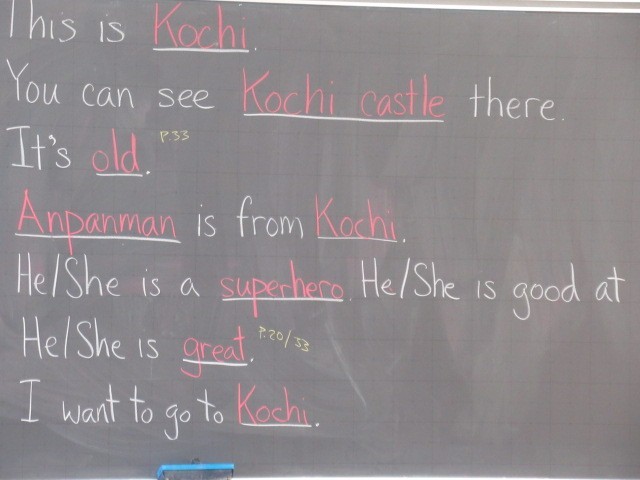 This is Kochi.
You can see Kochi castle there.
It's old. P.33
Anpanman is from Kochi.
He/She is a superhero. He/She is good at
He/She is great. P.20/33
I want to go to Kochi.